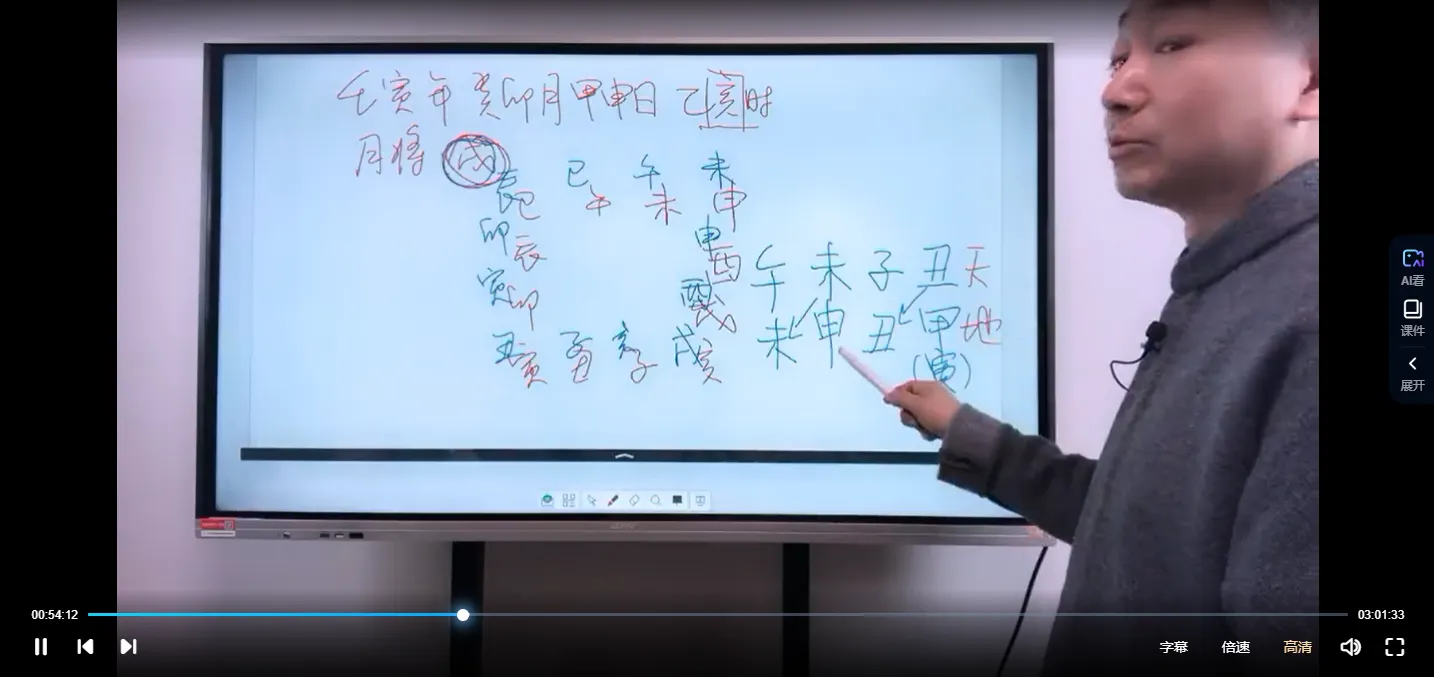 壬寅年 癸卯月 甲申日 乙亥时
月将 戌
辰 巳 午 未
巳 午 未 申
卯 申
辰 酉
午 未 子 丑 天
寅 酉
卯 戌
未 申 丑 甲 地
(寅)
丑 子 亥 戌
寅 丑 子 亥
AI看
课件
展开
00:54:12
03:01:33
字幕 倍速 高清